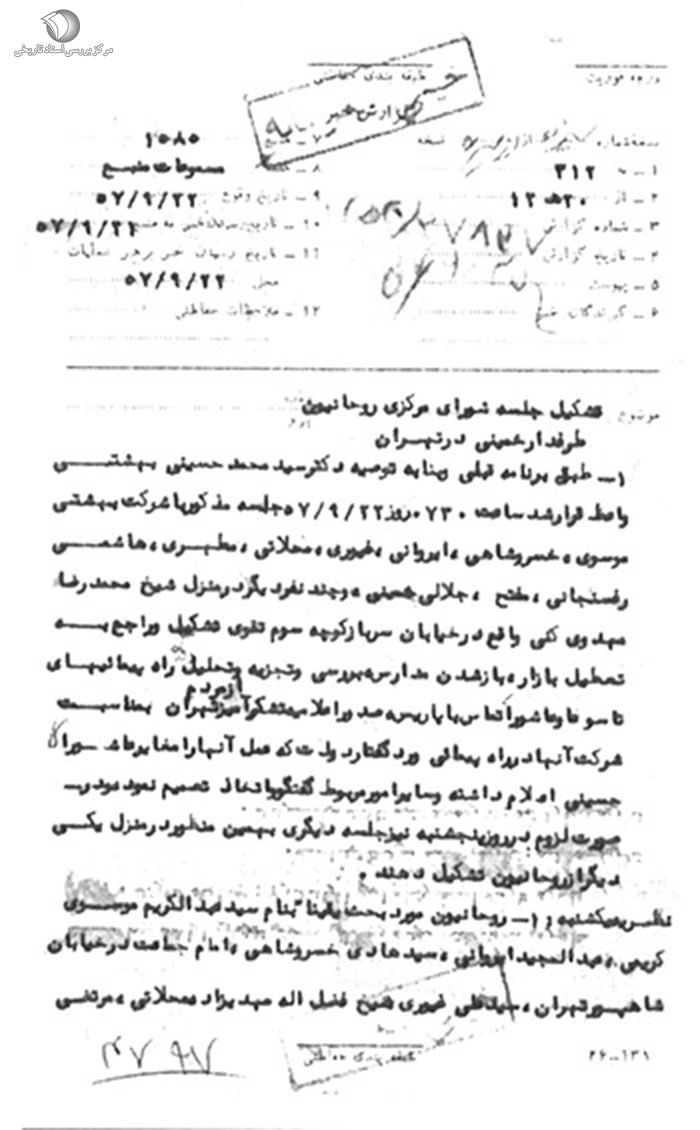 مرکز بررسی اسناد تاریخی
درجه فوریت
طبقه بندی حفاظتی
خیلی
گزارش خبر
نسخه شماره از نسخه
۱ ـ به ۳۱۲
۲ ـ از ۲۰ ﻫ ۱۲
۳ ـ شماره گزارش
۴ ـ تاریخ گزارش
۵ ـ پیوست
۶ ـ گیرندگان خبر
۷ ـ منبع ۱۰۸۵
۸ ـ مسموعات منبع
۹ ـ تاریخ وقوع ۵۷/۹/۲۲
۱۰ ـ تاریخ رسیدن خبر به منبع ۵۷/۹/۲۲
۱۱ ـ تاریخ رسیدن خبر به رهبر عملیات
محل ۵۷/۹/۲۲
۱۲ ـ ملاحظات حفاظتی
موضوع تشکیل جلسه شورای مرکزی روحانیون
طرفدار خمینی در تهران
۱ـ طبق برنامه قبلی و بنا به توصیه دکتر سید محمد حسینی بهشتی
واعظ قرار شد ساعت ۰۷۳۰ روز ۵۷/۹/۲۲ جلسه مذکور با شرکت بهشتی
موسوی ، خسروشاهی ، ایروانی ، غیوری ، محلاتی ، مطهری ، هاشمی
رفسنجانی ، مفتح ، جلالی خمینی ، و چند نفر دیگر در منزل شیخ محمد رضا
مهدوی کنی واقع در خیابان سرباز کوچه سوم تقوی تشکیل و راجع به
تعطیل بازار ، باز شدن مدارس ، بررسی و تجزیه و تحلیل راه پیمائیهای
تاسوعا و عاشورا تماس با پاریس ، صدور اعلامیه تشکر آمیز از مردم تهران بمناسبت
شرکت آنها در راه پیمائی و رد گفتار دولت که عمل آنها را مغایر عاشورای
حسینی اعلام داشته و سایر امور مربوط گفتگو و اتخاذ تصمیم نموده و در
صورت لزوم در روز پنجشنبه نیز جلسه دیگری بهمین منظور در منزل یکی
دیگر از روحانیون تشکیل دهند .
نظریه یکشنبه : ۱ـ روحانیون مورد بحث یقینا" بنام سید عبدالکریم موسوی
کریمی ، عبدالمجید ایروانی ، سید هادی خسروشاهی ، امام جماعت در خیابان
شاهپور تهران ، سید علی غیوری شیخ فضل اله مهدیزاده محلاتی ، مرتضی
طبقه بندی حفاظتی
۲۶ـ۱۳۱